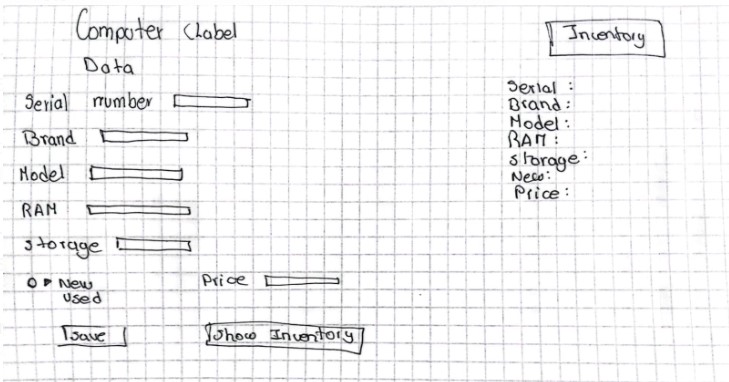 Computer Label
Data
Serial number
Brand
Model
RAM
Storage
New
Used
Price
Save
Show Inventory
Inventory
Serial :
Brand :
Model :
RAM :
Storage:
New:
Price :